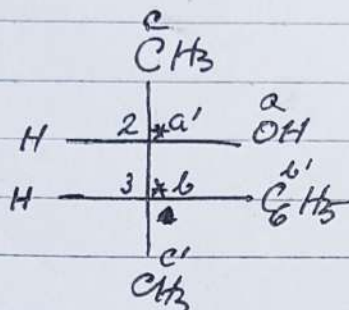 c
CH3
2 * a' a
H OH
3 * b b'
H C6H5
c'
CH3